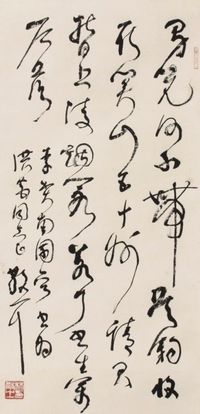 男兒何不帶吳鉤收
取關山五十州請君
暫上凌煙閣若个書生萬
戶侯
李賀南園
同志正